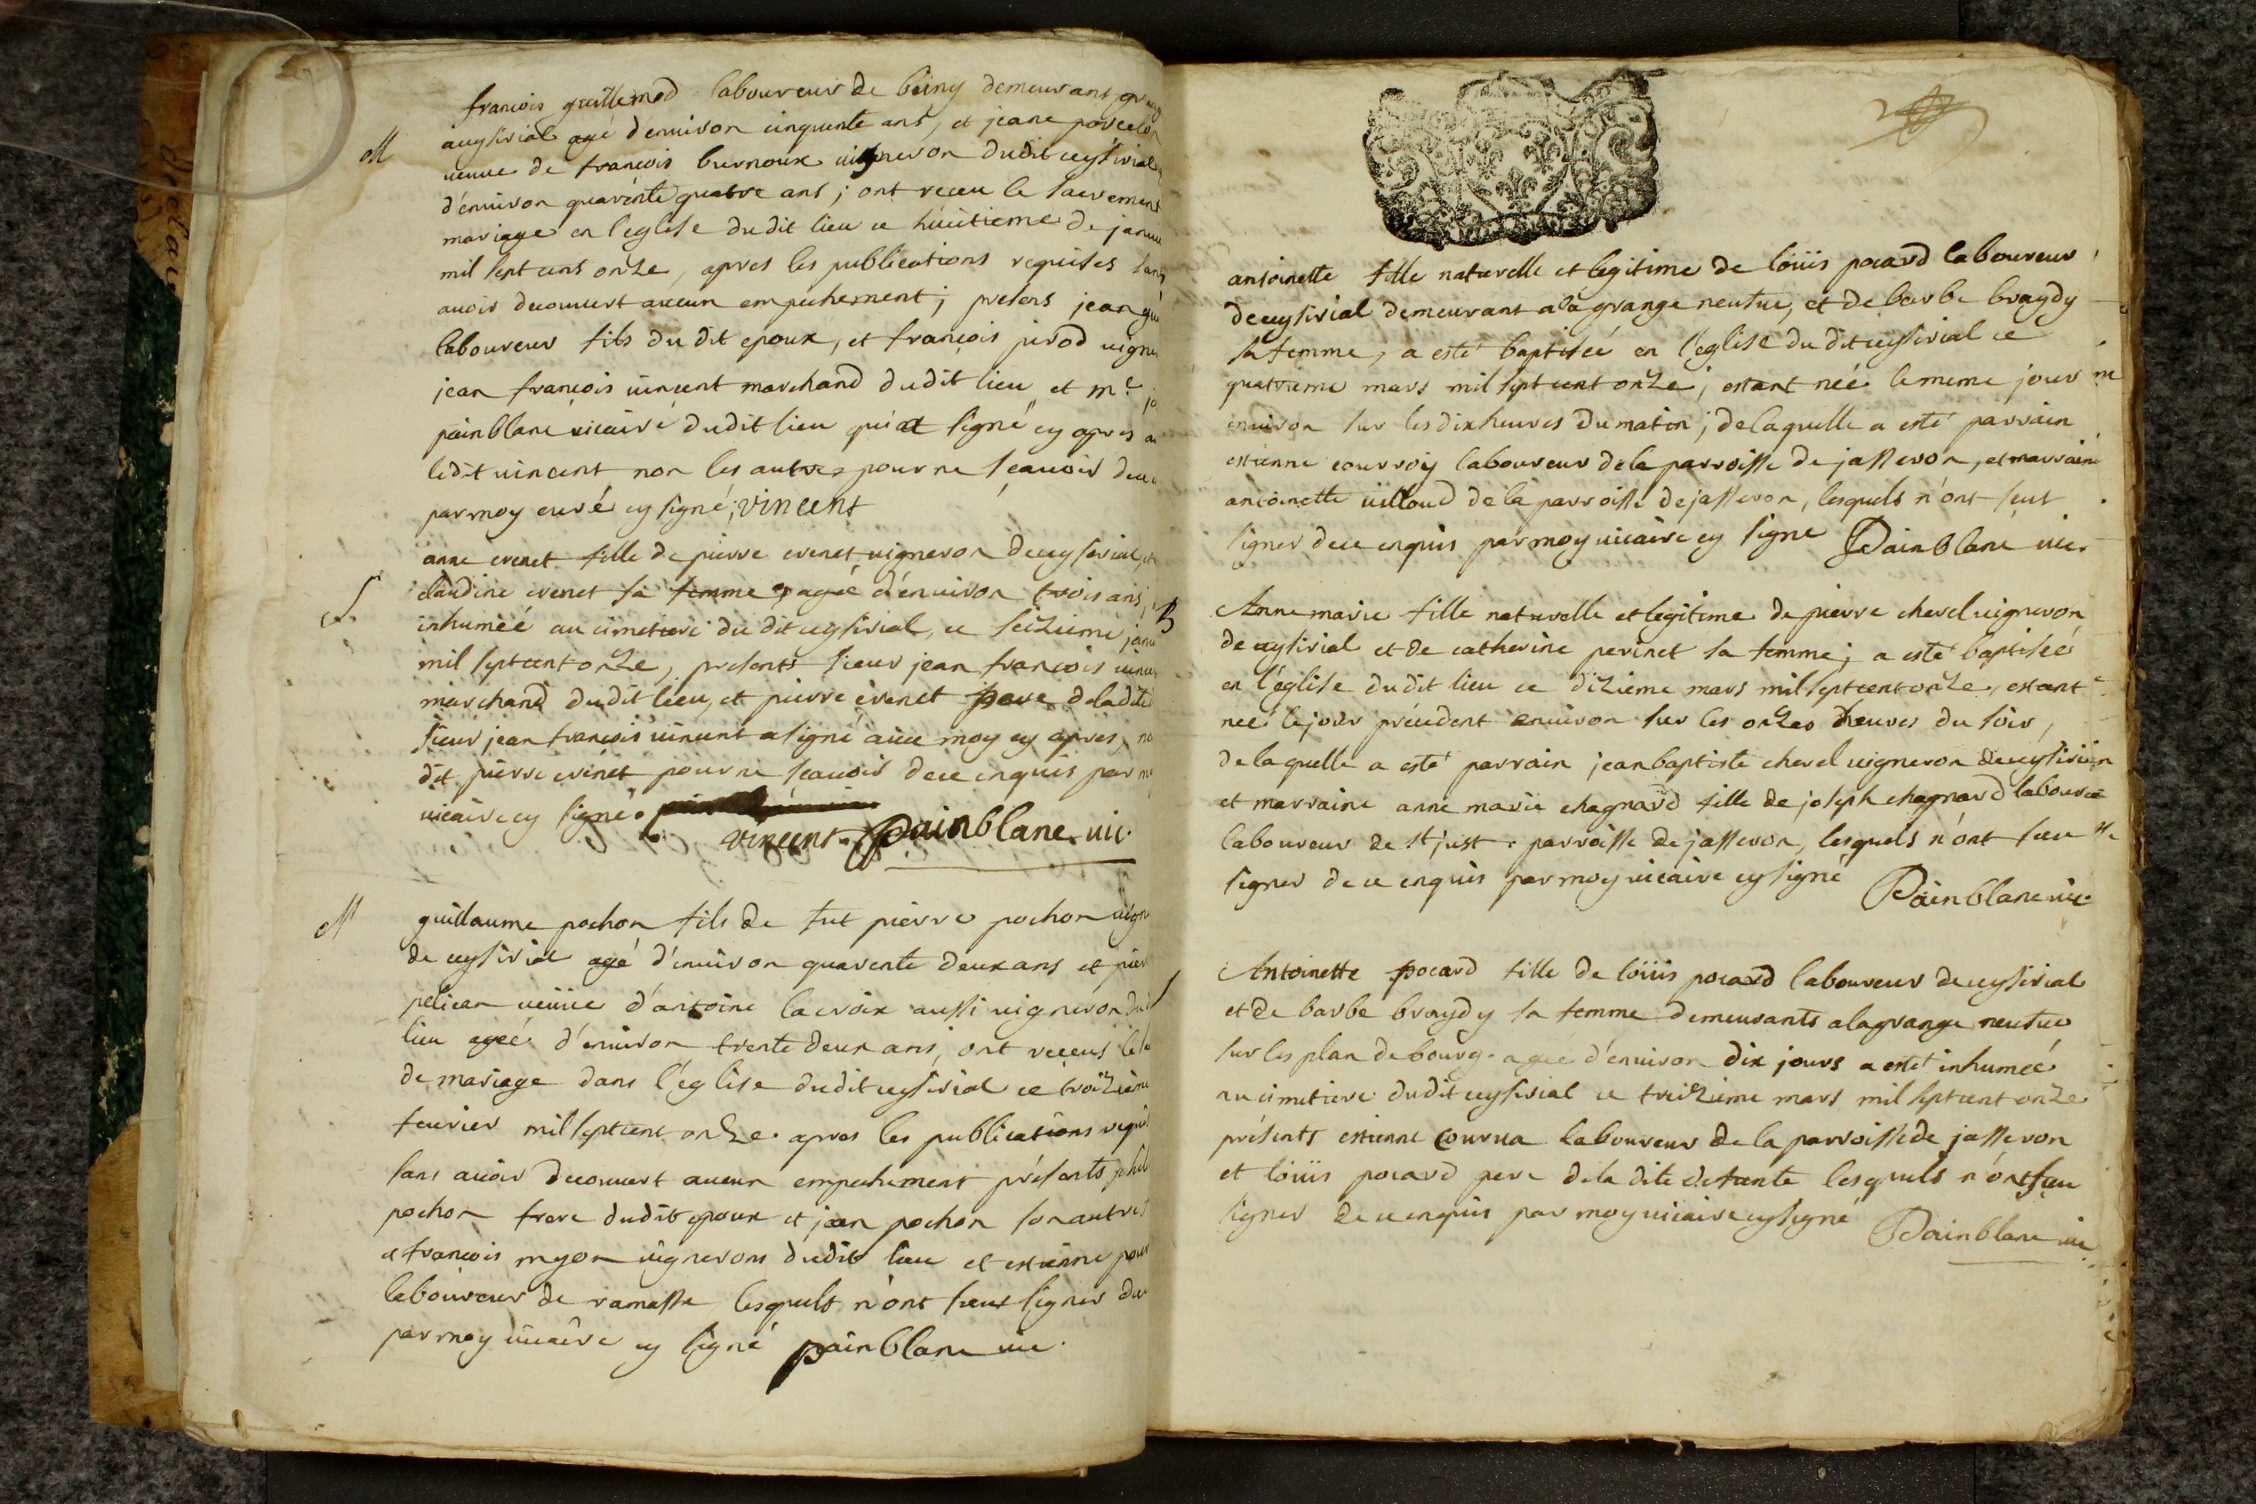 françois guillemod laboureur de beiny demeurant
M
a ceyssiriat agé d'environ cinquente ans, et jeane
veuve de françois burnoux vigneron dudit ceysiriat
d'environ quarente quatre ans; ont receu le sacrement
mariage en l'eglise dudit lieu ce huitieme de janvie
mil sept cens onze, apres les publications requises sans
avoir decouvert aucun empechement; presens jean gui
laboureur fils du dit epoux, et françois pirod vigne
jean françois vincent marchand dudit lieu et me. jo
painblanc vicaire dudit lieu qui a signé cy apres a
ledit vincent non les autres pour ne sçavoir de ce
par moy curé cy signé; vincent
S
anne evenet fille de pierre evenet vigneron de ceysiriat, et
claudine evenet sa femme, agée d'environ trois ans,
inhumée au cimetiere du dit ceysiriat, ce seizieme janv
mil sept cent onze, presents sieur jean françois vincen
marchand dudit lieu, et pierre evenet pere de la dite
sieur jean françois vincent a signé avec moy cy apres, no
dit pierre evenet pour ne sçavoir de ce enquis par m
vicaire cy signé.
vincent. Painblanc. vic.
M
guillaume pochon fils de fut pierre pochon vign
de ceysiriat agé d'environ quarente deux ans et pier
pelican veuve d'antoine lacroix aussi vigneron du
lieu agée d'environ trente deux ans, ont receus le s
de mariage dans l'église dudit ceysiriat ce troizieme
fevrier mil sept cent onze. apres les publications requi
sans avoir decouvert aucun empechement présents
pochon frere dudit epoux et jean pochon son autre
et françois myon vignerons dudit lieu et estienne
laboureur de ramasse lesquels n'ont sceus signer de
par moy vicaire cy signé Painblanc vic.
antoinette fille naturelle et legitime de loüis pocard laboureur
de ceysiriat demeurant a la grange neufue, et de barbe braydy
sa femme, a esté baptisée en l'eglise du dit ceysiriat ce
quatrieme mars mil sept cent onze; estant née le meme jour
environ sur les dix heures du matin; de laquelle a esté parrain
estienne courvoy laboureur de la parroisse de jasseron, et marraine
antoinette villoud de la parroisse de jasseron, lesquels n'ont sceut
signer de ce enquis par moy vicaire cy signe Painblanc vic.
B
Anne marie fille naturelle et legitime de pierre chevel vigneron
de ceysiriat et de catherine perinet sa femme; a esté baptisée
en l'église dudit lieu ce dizieme mars mil sept cent onze, estant
née le jour précedent environ sur les onze heures du soir,
de laquelle a esté parrain jean baptiste chevel vigneron de ceysiriat
et marraine anne marie chagnard fille de joseph chagnard laboureu
laboureur de st just. parroisse de jasseron, lesquels n'ont sceu
signer de ce enquis par moy vicaire cy signé Painblanc vic.
S
Antoinette pocard fille de loüis pocard laboureur de ceysiriat
et de barbe braydy sa femme demeurants a la grange neufue
sur les plan de bourg. agée d'environ dix jours a esté inhumée
au cimitiere dudit ceysiriat ce treizieme mars mil sept cent onze
présents estienne courva laboureur de la parroisse de jasseron
et loüis pocard pere de la dite defunte lesquels n'ont sceu
signer de ce enquis par moy vicaire cy signé Painblanc vic.